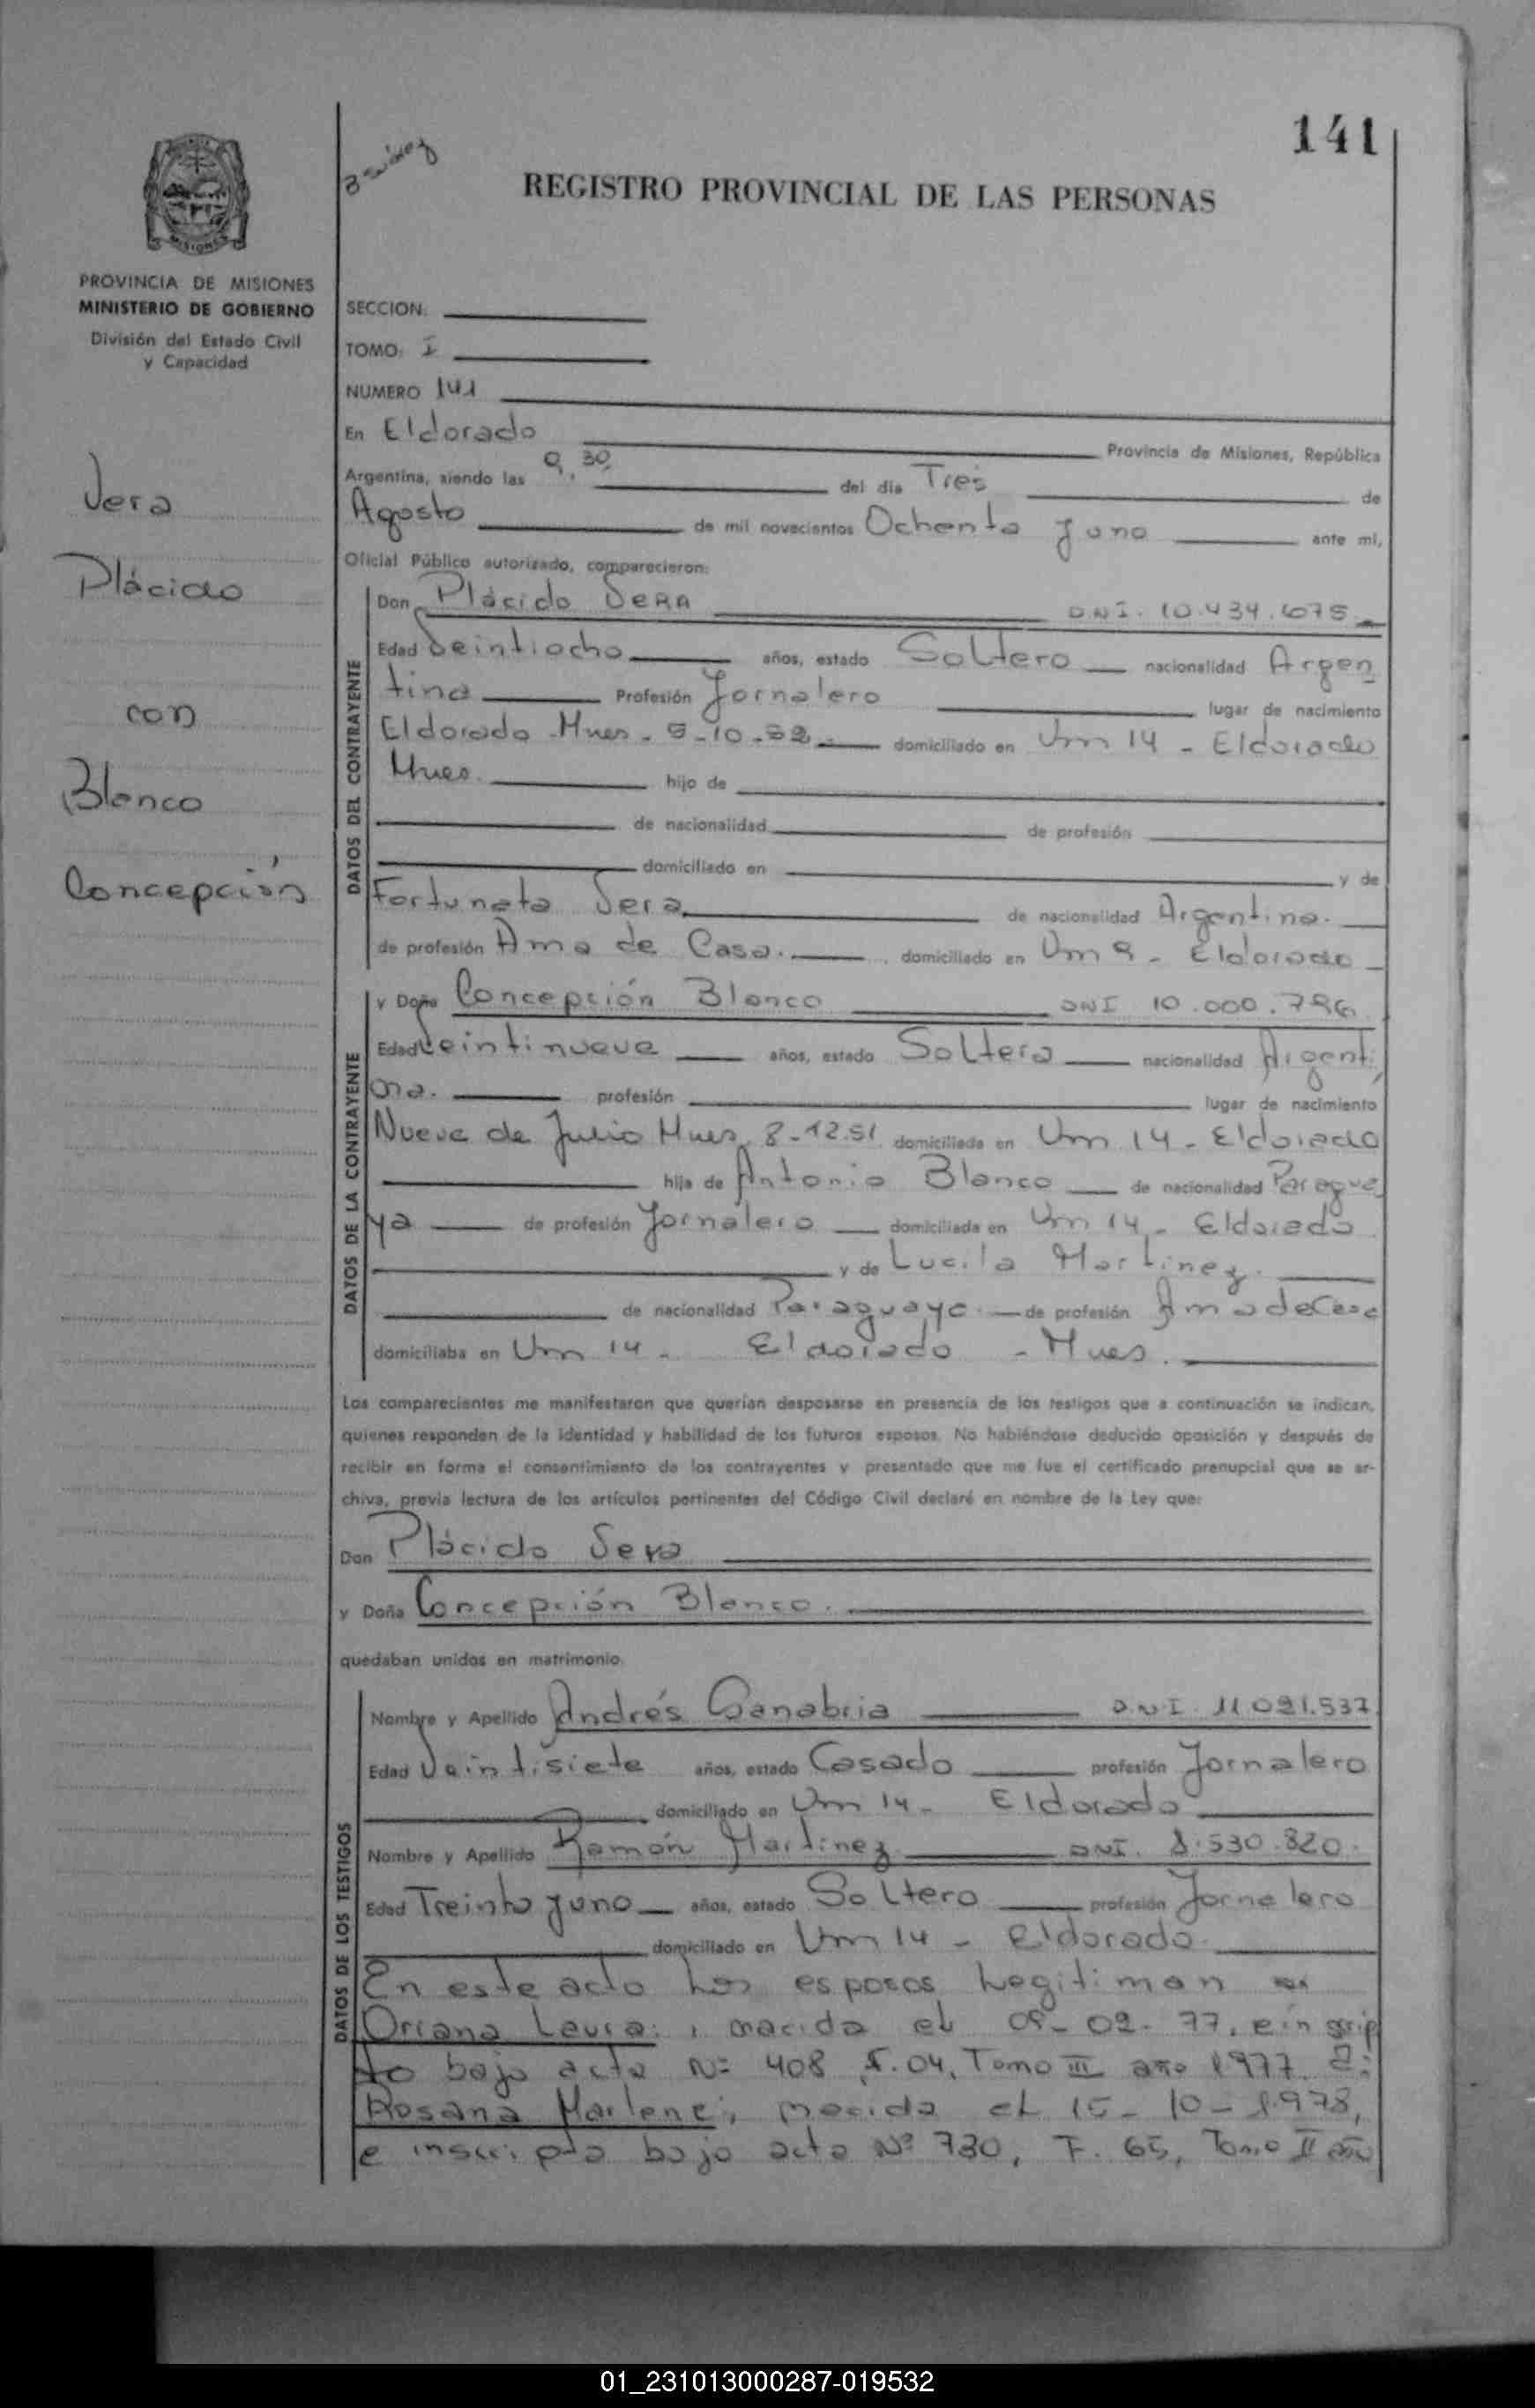 141
REGISTRO PROVINCIAL DE LAS PERSONAS
MISIONES
PROVINCIA DE MISIONES
MINISTERIO DE GOBIERNO
División del Estado Civil
y Capacidad
Vera
Plácido
con
Blanco
Concepción
SECCION:
TOMO: I
NUMERO 141
En Eldorado Provincia de Misiones, República
Argentina, siendo las 9,30 del día Tres de
Agosto de mil novecientos Ochenta y uno ante mí,
Oficial Público autorizado, comparecieron:
DATOS DEL CONTRAYENTE
Don Plácido Vera DNI. 10.434.675
Edad Veintiocho años, estado Soltero nacionalidad Argen
tina Profesión Jornalero lugar de nacimiento
Eldorado Mnes. 5-10-52 domiciliado en Km 14 - Eldorado
Mnes. hijo de
de nacionalidad de profesión
domiciliado en y de
Fortunata Vera de nacionalidad Argentina.
de profesión Ama de Casa. domiciliado en Km 9 - Eldorado
DATOS DE LA CONTRAYENTE
y Doña Concepción Blanco DNI 10.000.796
Edad Veintinueve años, estado Soltera nacionalidad Argenti
na. profesión lugar de nacimiento
Nueve de Julio Mnes, 8-12.51 domiciliada en Km 14 - Eldorado
hija de Antonio Blanco de nacionalidad Paragua
ya de profesión Jornalero domiciliada en Km 14 - Eldorado
y de Lucila Martinez.
de nacionalidad Paraguaya de profesión Ama de Casa
domiciliaba en Km 14 - Eldorado - Mnes.
Los comparecientes me manifestaron que querían desposarse en presencia de los testigos que a continuación se indican,
quienes responden de la identidad y habilidad de los futuros esposos. No habiéndose deducido oposición y después de
recibir en forma el consentimiento de los contrayentes y presentado que me fue el certificado prenupcial que se ar-
chiva, previa lectura de los artículos pertinentes del Código Civil declaré en nombre de la Ley que:
Don Plácido Vera
y Doña Concepción Blanco.
quedaban unidos en matrimonio.
DATOS DE LOS TESTIGOS
Nombre y Apellido Andrés Sanabria D.N.I. 11.021.537
Edad Veintisiete años, estado Casado profesión Jornalero
domiciliado en Km 14 - Eldorado
Nombre y Apellido Ramón Martinez DNI. 8.530.820.
Edad Treinta y uno años, estado Soltero profesión Jornalero
domiciliado en Km 14 - Eldorado.
En este acto los esposos Legitiman a
Oriana Laura: , nacida el 09-02-77, e inscrip
to bajo acta Nº 408, F. 04, Tomo III año 1977. 2:
Rosana Marlene, nacida el 15-10-1.978,
e inscripta bajo acta Nº 730, F. 65, Tomo II año
01_231013000287-019532